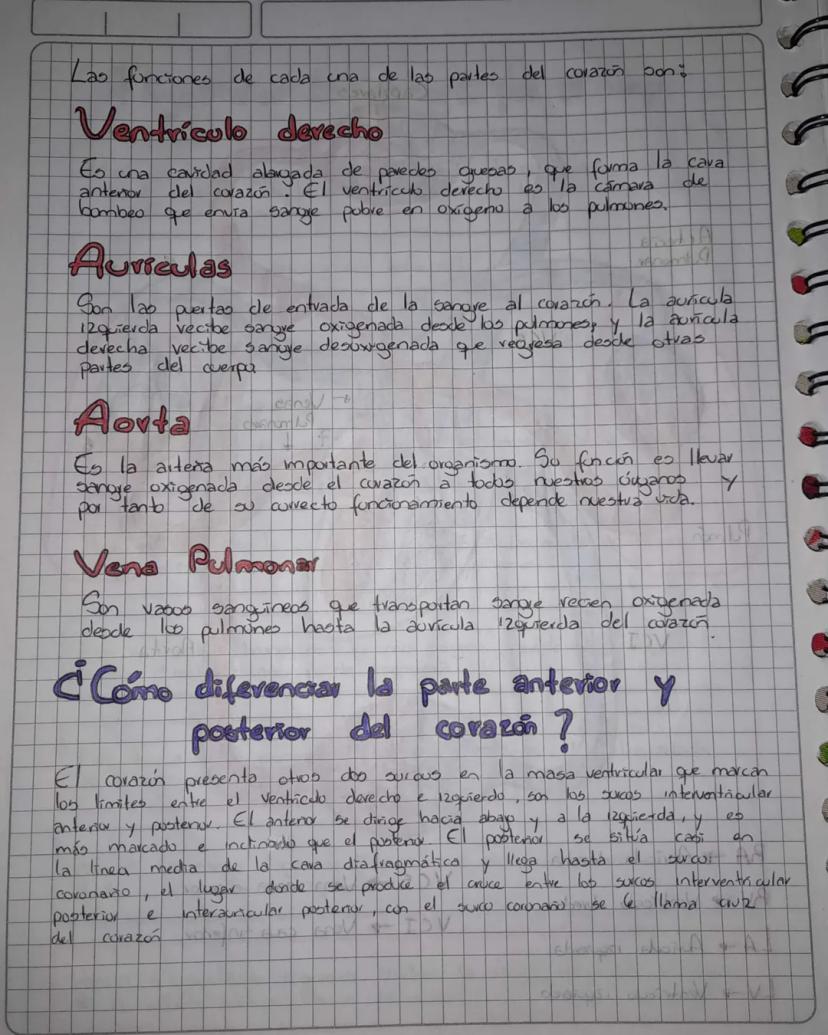 Las funciones de cada una de las partes del corazón son:
Ventrículo derecho
Es una cavidad alargada de paredes gruesas, que forma la cara
anterior del corazón. El ventrículo derecho es la cámara de
bombeo que envía sangre pobre en oxígeno a los pulmones.
Aurículas
Son las puertas de entrada de la sangre al corazón. La aurícula
izquierda recibe sangre oxigenada desde los pulmones, y la aurícula
derecha recibe sangre desoxigenada que regresa desde otras
partes del cuerpo.
Aorta
Es la arteria más importante del organismo. Su función es llevar
sangre oxigenada desde el corazón a todos nuestros órganos y
por tanto de su correcto funcionamiento depende nuestra vida.
Vena Pulmonar
Son vasos sanguíneos que transportan sangre recien oxigenada
desde los pulmones hasta la aurícula izquierda del corazón.
¿Cómo diferenciar la parte anterior y
posterior del corazón?
El corazón presenta otros dos surcos en la masa ventricular que marcan
los límites entre el ventrículo derecho e izquierdo, son los surcos interventricular
anterior y posterior. El anterior se dirige hacia abajo y a la izquierda, y es
más marcado e inclinado que el posterior. El posterior se sitúa casi en
la línea media de la cara diafragmática y llega hasta el surco
coronario, el lugar donde se produce el cruce entre los surcos interventricular
posterior e interauricular posterior, con el surco coronario se le llama cruz
del corazón